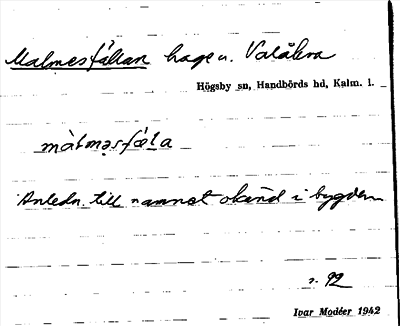 Malmesfällan hage u. Valåkra
Högsby sn, Handbörds hd, Kalm. l.
màlməsfæla
Anledn. till namnet okänd i bygden
s. 92
Ivar Modéer 1942